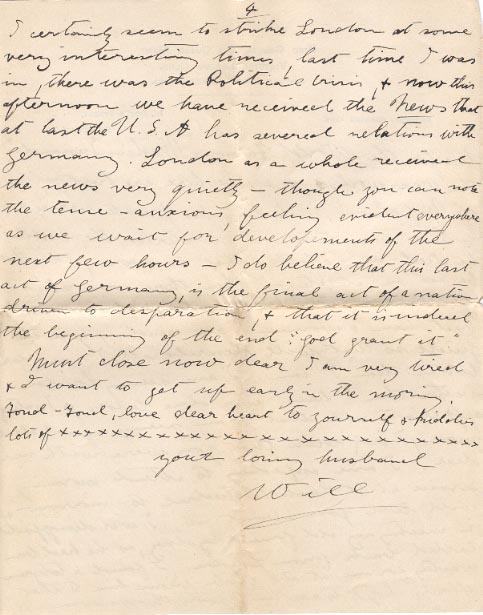 4
I certainly seem to strike London at some
very interesting times, last time I was
in, there was the Political Crisis, & now this
afternoon we have received the News that
at last the U.S.A has severed relations with
Germany. London as a whole received
the news very quietly - though you can note
the tense - anxious, feeling evident everywhere
as we wait for developements of the
next few hours - I do believe that this last
act of Germany, is the final act of a nation
driven to desparation, & that it is indeed
the beginning of the end "God grant it."
Must close now dear I am very tired
& I want to get up early in the morning.
Fond - Fond, love dear heart to yourself & kiddies
lots of xxxxxxxxxxxxxxxxxxxxxxxxxxx
your loving husband
Will